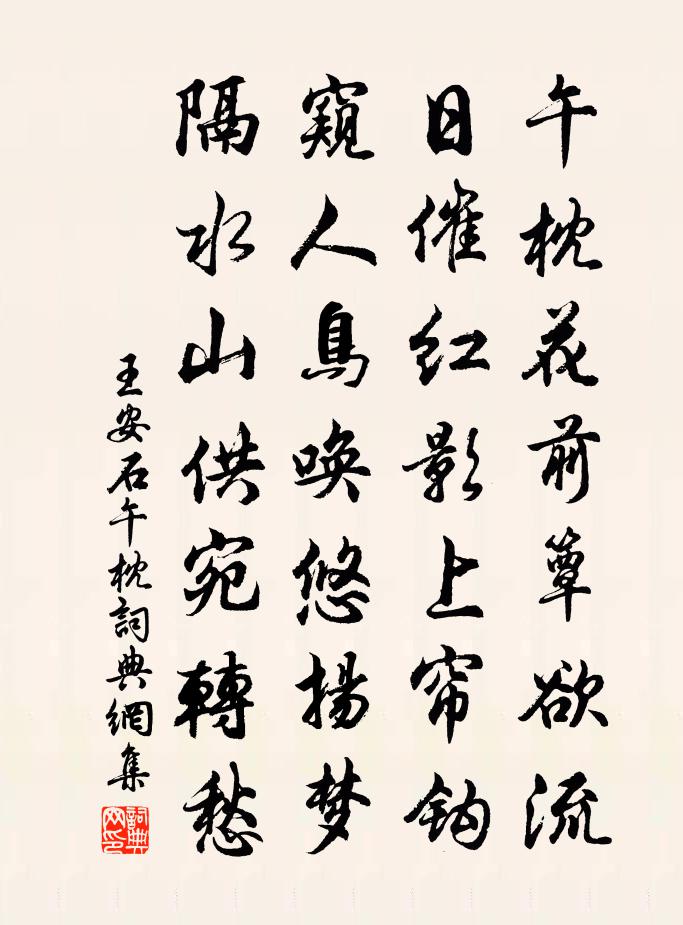 午枕花前簟欲流
日催红影上帘钩
窺人鳥唤悠揚梦
隔水山供宛轉愁
王安石午枕詞典網集
詞典網印